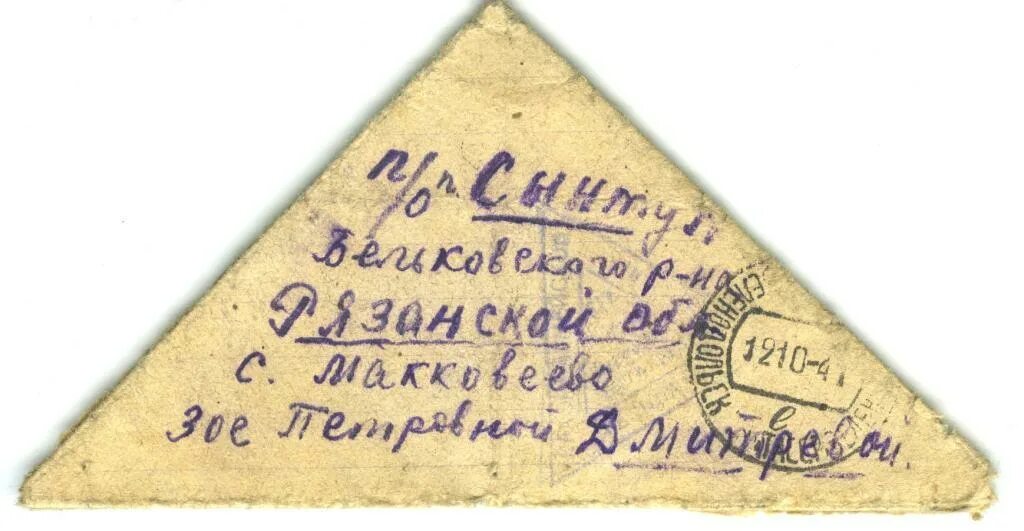 п/о п. Сынтул
Бельковского р-на
Рязанской обл
с. Макковеево
Зое Петровной Дмитревой.
1210-4
е